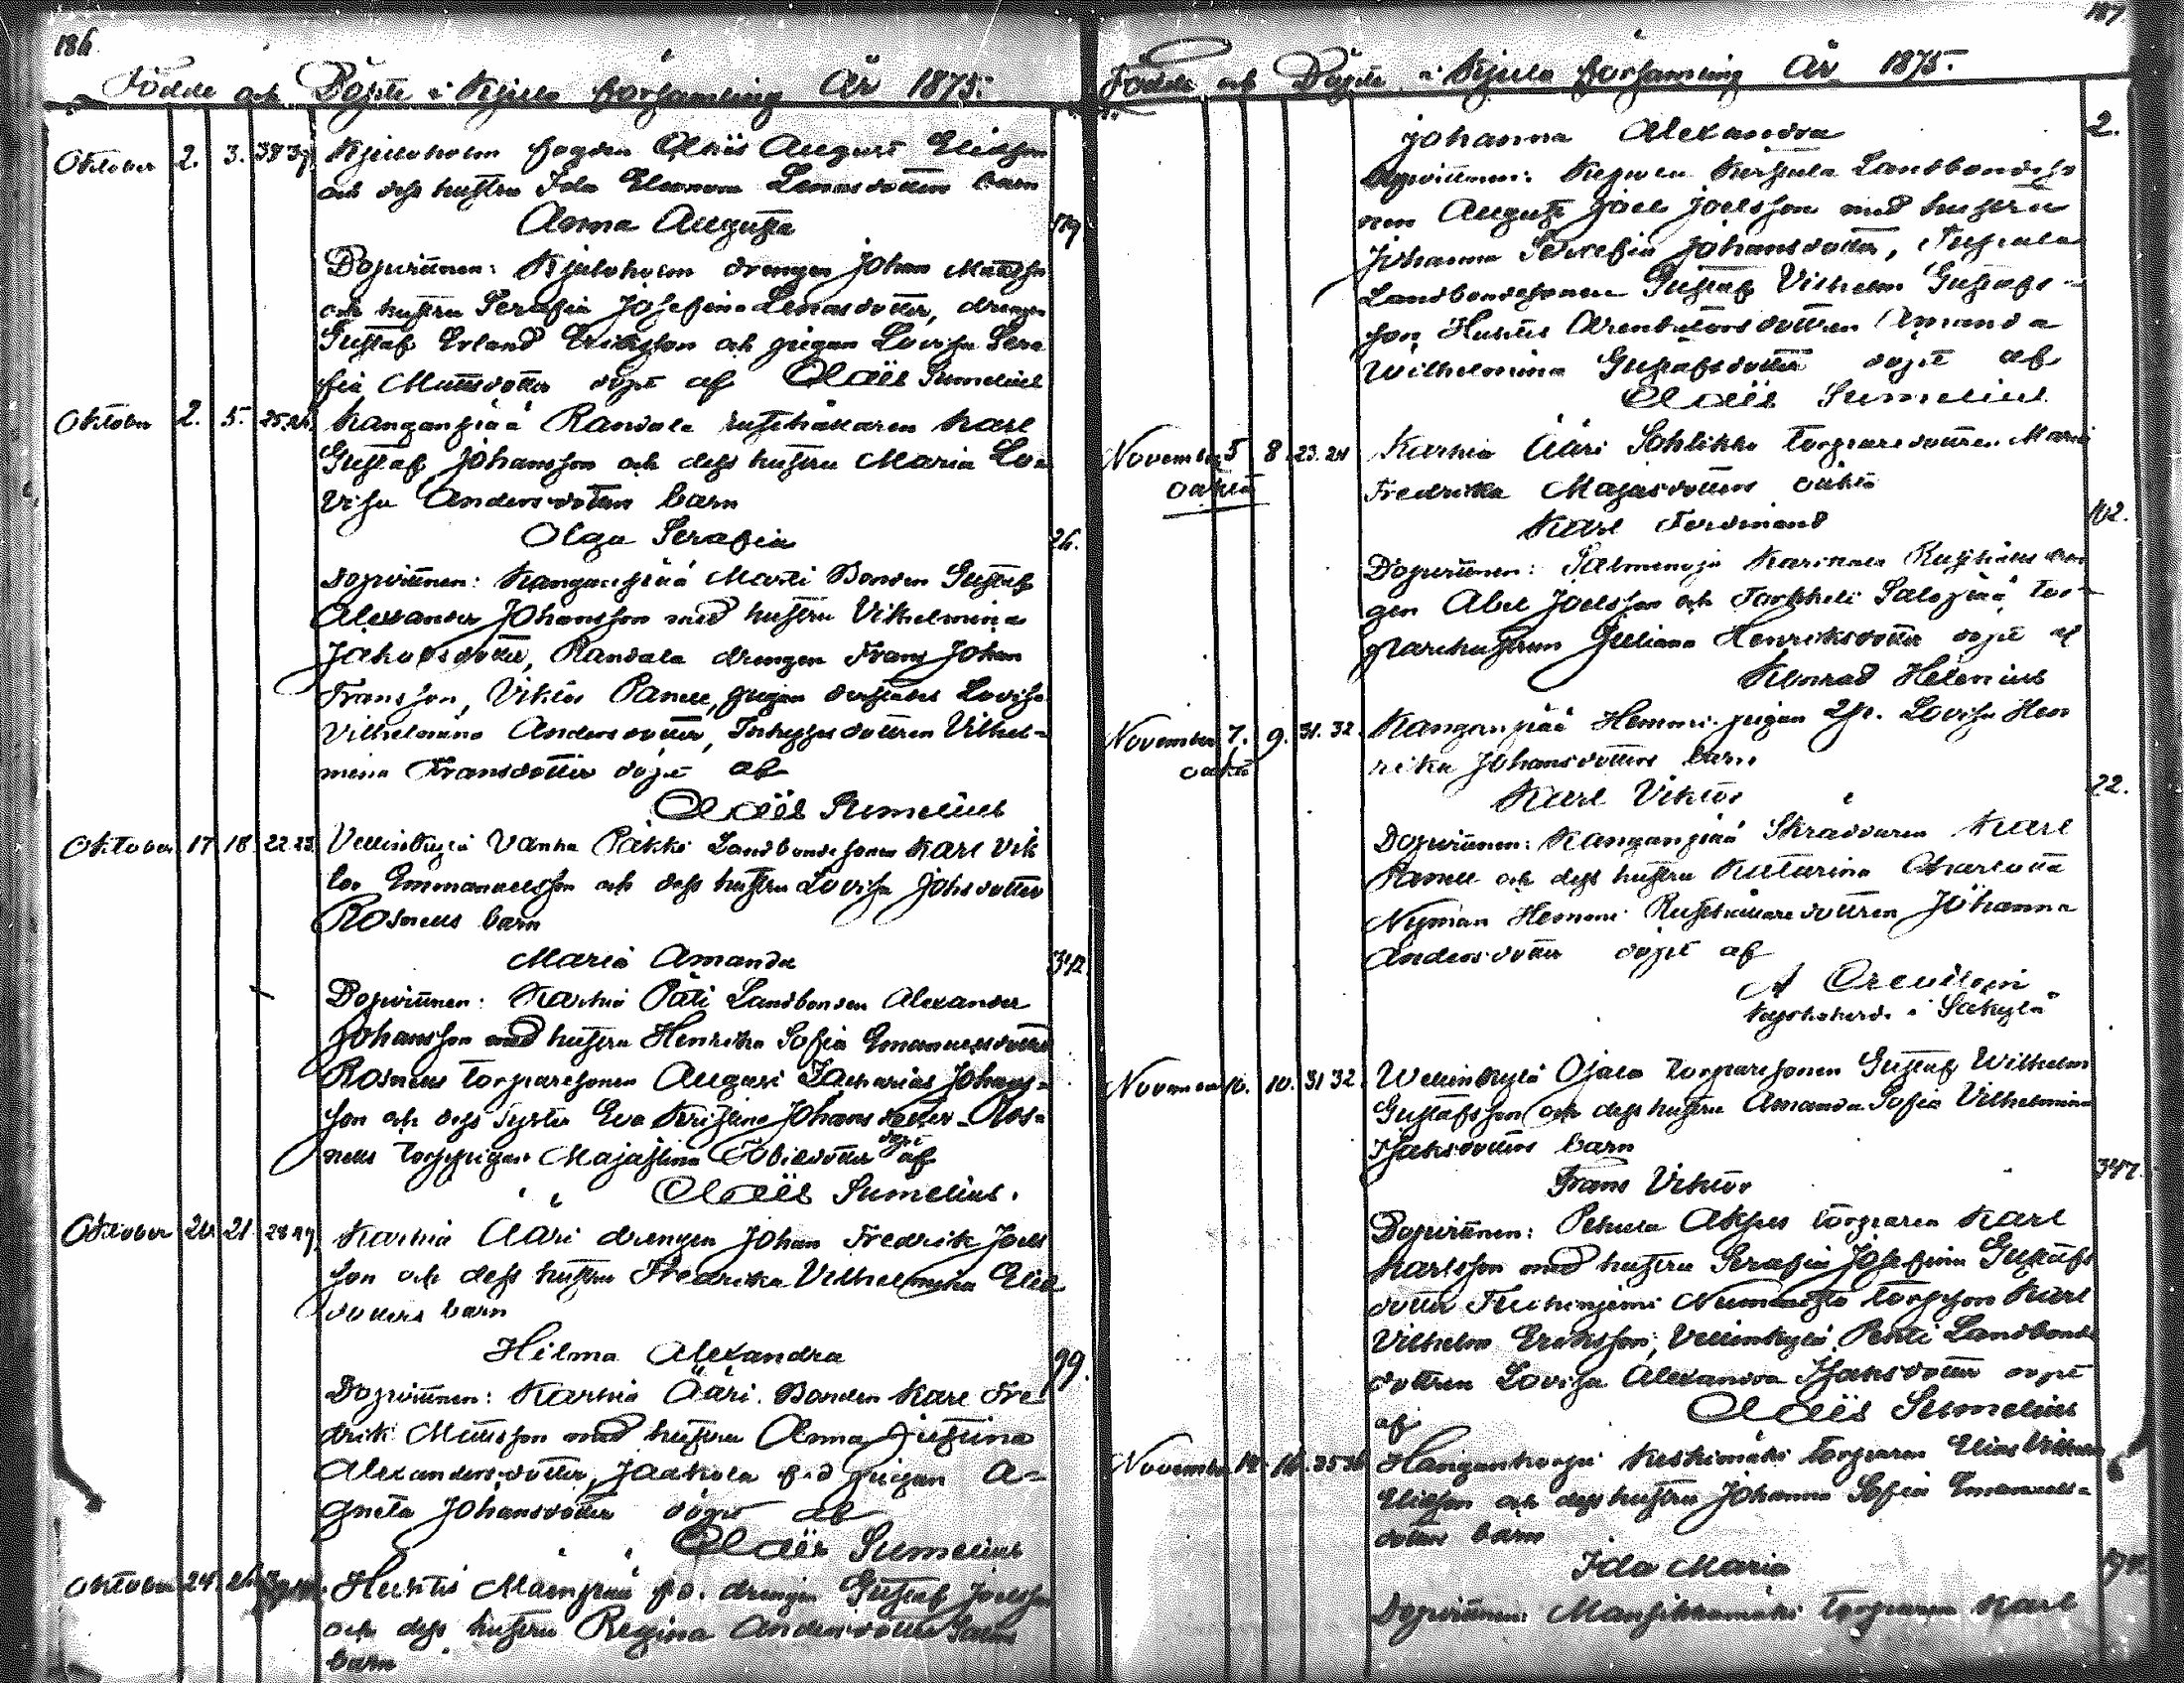 186.
Födde och Döpte i Kjulo församling År 1875.
Oktober 2. 3. Kjuloholm fogden Claës August Eliasson
och dess hustru Ida Eleonora Lenasdotters barn
Anna Augusta
Dopvittnen: Kjuloholm drengen Johan Mattsson
och hustru Serafia Josefina Lenasdotter, drengen
Gustaf Erland Eriksson och pigan Lovisa Sera
fia Mattsdotter döpt af Claës Sumelius
Oktober 2. 5. 25.26. Kanganpää Randala rusthållaren Karl
Gustaf Johansson och dess hustru Maria Lo
visa Andersdotters barn
Olga Serafia
26.
Dopvittnen: Kanganpää Martti Bonden Gustaf
Alexander Johansson med hustru Vilhelmina
Jakobsdotter, Randala drengen Frans Johan
Fransson, Viktor Panell, pigan Lovisa
Vilhelmina Andersdotter, dottren Vilhel-
mina Fransdotter döpt af
Claës Sumelius
Oktober 17 18. 22.23. Vellinkylä Vanha Päkki Landbondesonen Karl Vik
tor Emmanuelsson och dess hustru Lovisa Johsdotter
Rosnells barn
Maria Amanda
342
Dopvittnen: Karhia Päti Landbonden Alexander
Johansson med hustru Henrika Sofia Emanuelsdotter
Rosnells torparesonen August Zacharias Johans-
son och dess syster Eva Kristina Johansdotter Ros-
nells Majastina Tobiedotter döpt af
Claës Sumelius.
Oktober 20. 21. 28.29. Karhia Ääri drengen Johan Fredrik Joels
son och dess hustru Fredrika Vilhelmina Elias
dotters barn
Hilma Alexandra
99.
Dopvittnen: Karhia Ääri Bonden Karl Fre
drik Mattsson med hustru Anna Justina
Alexandersdotter, Jaakola pigan A-
gneta Johansdotter döpt af
Claës Sumelius
Oktober 24. Huhtis drengen Gustaf Joelsson
och dess hustru Regina Andersdotter
barn
187
Födde och Döpte i Kjulo församling År 1875.
Johanna Alexandra
2.
Dopvittnen: Landbondeso
nen August Joel Joelsson med hustru
Johanna Serafia Johansdotter,
Landbondesonen Gustaf Vilhelm Gustafs-
son Huhtis Arendatorsdottren Amanda
Wilhelmina Gustafsdotter döpt af
Claës Sumelius
November 5 8. 23.24 Karhia Ääri Sohlikko torparedottren Maria
oäkta
Fredrika Majasdotters oäkta
Karl Ferdinand
102.
Dopvittnen: Salmenoja Karikala Rusthålls dren
gen Abel Joelsson och Salopää tor-
parehustrun Juliana Henriksdotter döpt af
Konrad Helenius
November 7. 9. 31.32. Kanganpää Hemmi pigan Lovisa Hen
oäkta
rika Johansdotters barn
Karl Viktor
22.
Dopvittnen: Kanganpää Skräddaren Karl
Panell och dess hustru Katarina Charlotta
Nyman Hemmi Rusthållaredottren Johanna
Andersdotter döpt af
A Grenstein
kyrkoherde i Säkylä
November 10. 10. 31 32. Wellinkylä Ojala torparesonen Gustaf Wilhelm
Gustafsson och dess hustru Amanda Sofia Vilhelmina
Isaksdotters barn
Frans Viktor
347.
Dopvittnen: Pehula torparen Karl
Karlsson med hustru Serafia Josefina Gustafs
dotter torpson Karl
Vilhelm Eriksson, Vellinkylä Pentti Landbonde
dottren Lovisa Alexandra Isaksdotter döpt
af Claës Sumelius
November 14. 35 36 Harjankorpi Keskimäki torparen Elias Vilhelm
Eliasson och dess hustru Johanna Sofia Emanuels-
dotters barn
Ida Maria
Dopvittnen: Mansikkamäki torparen Karl